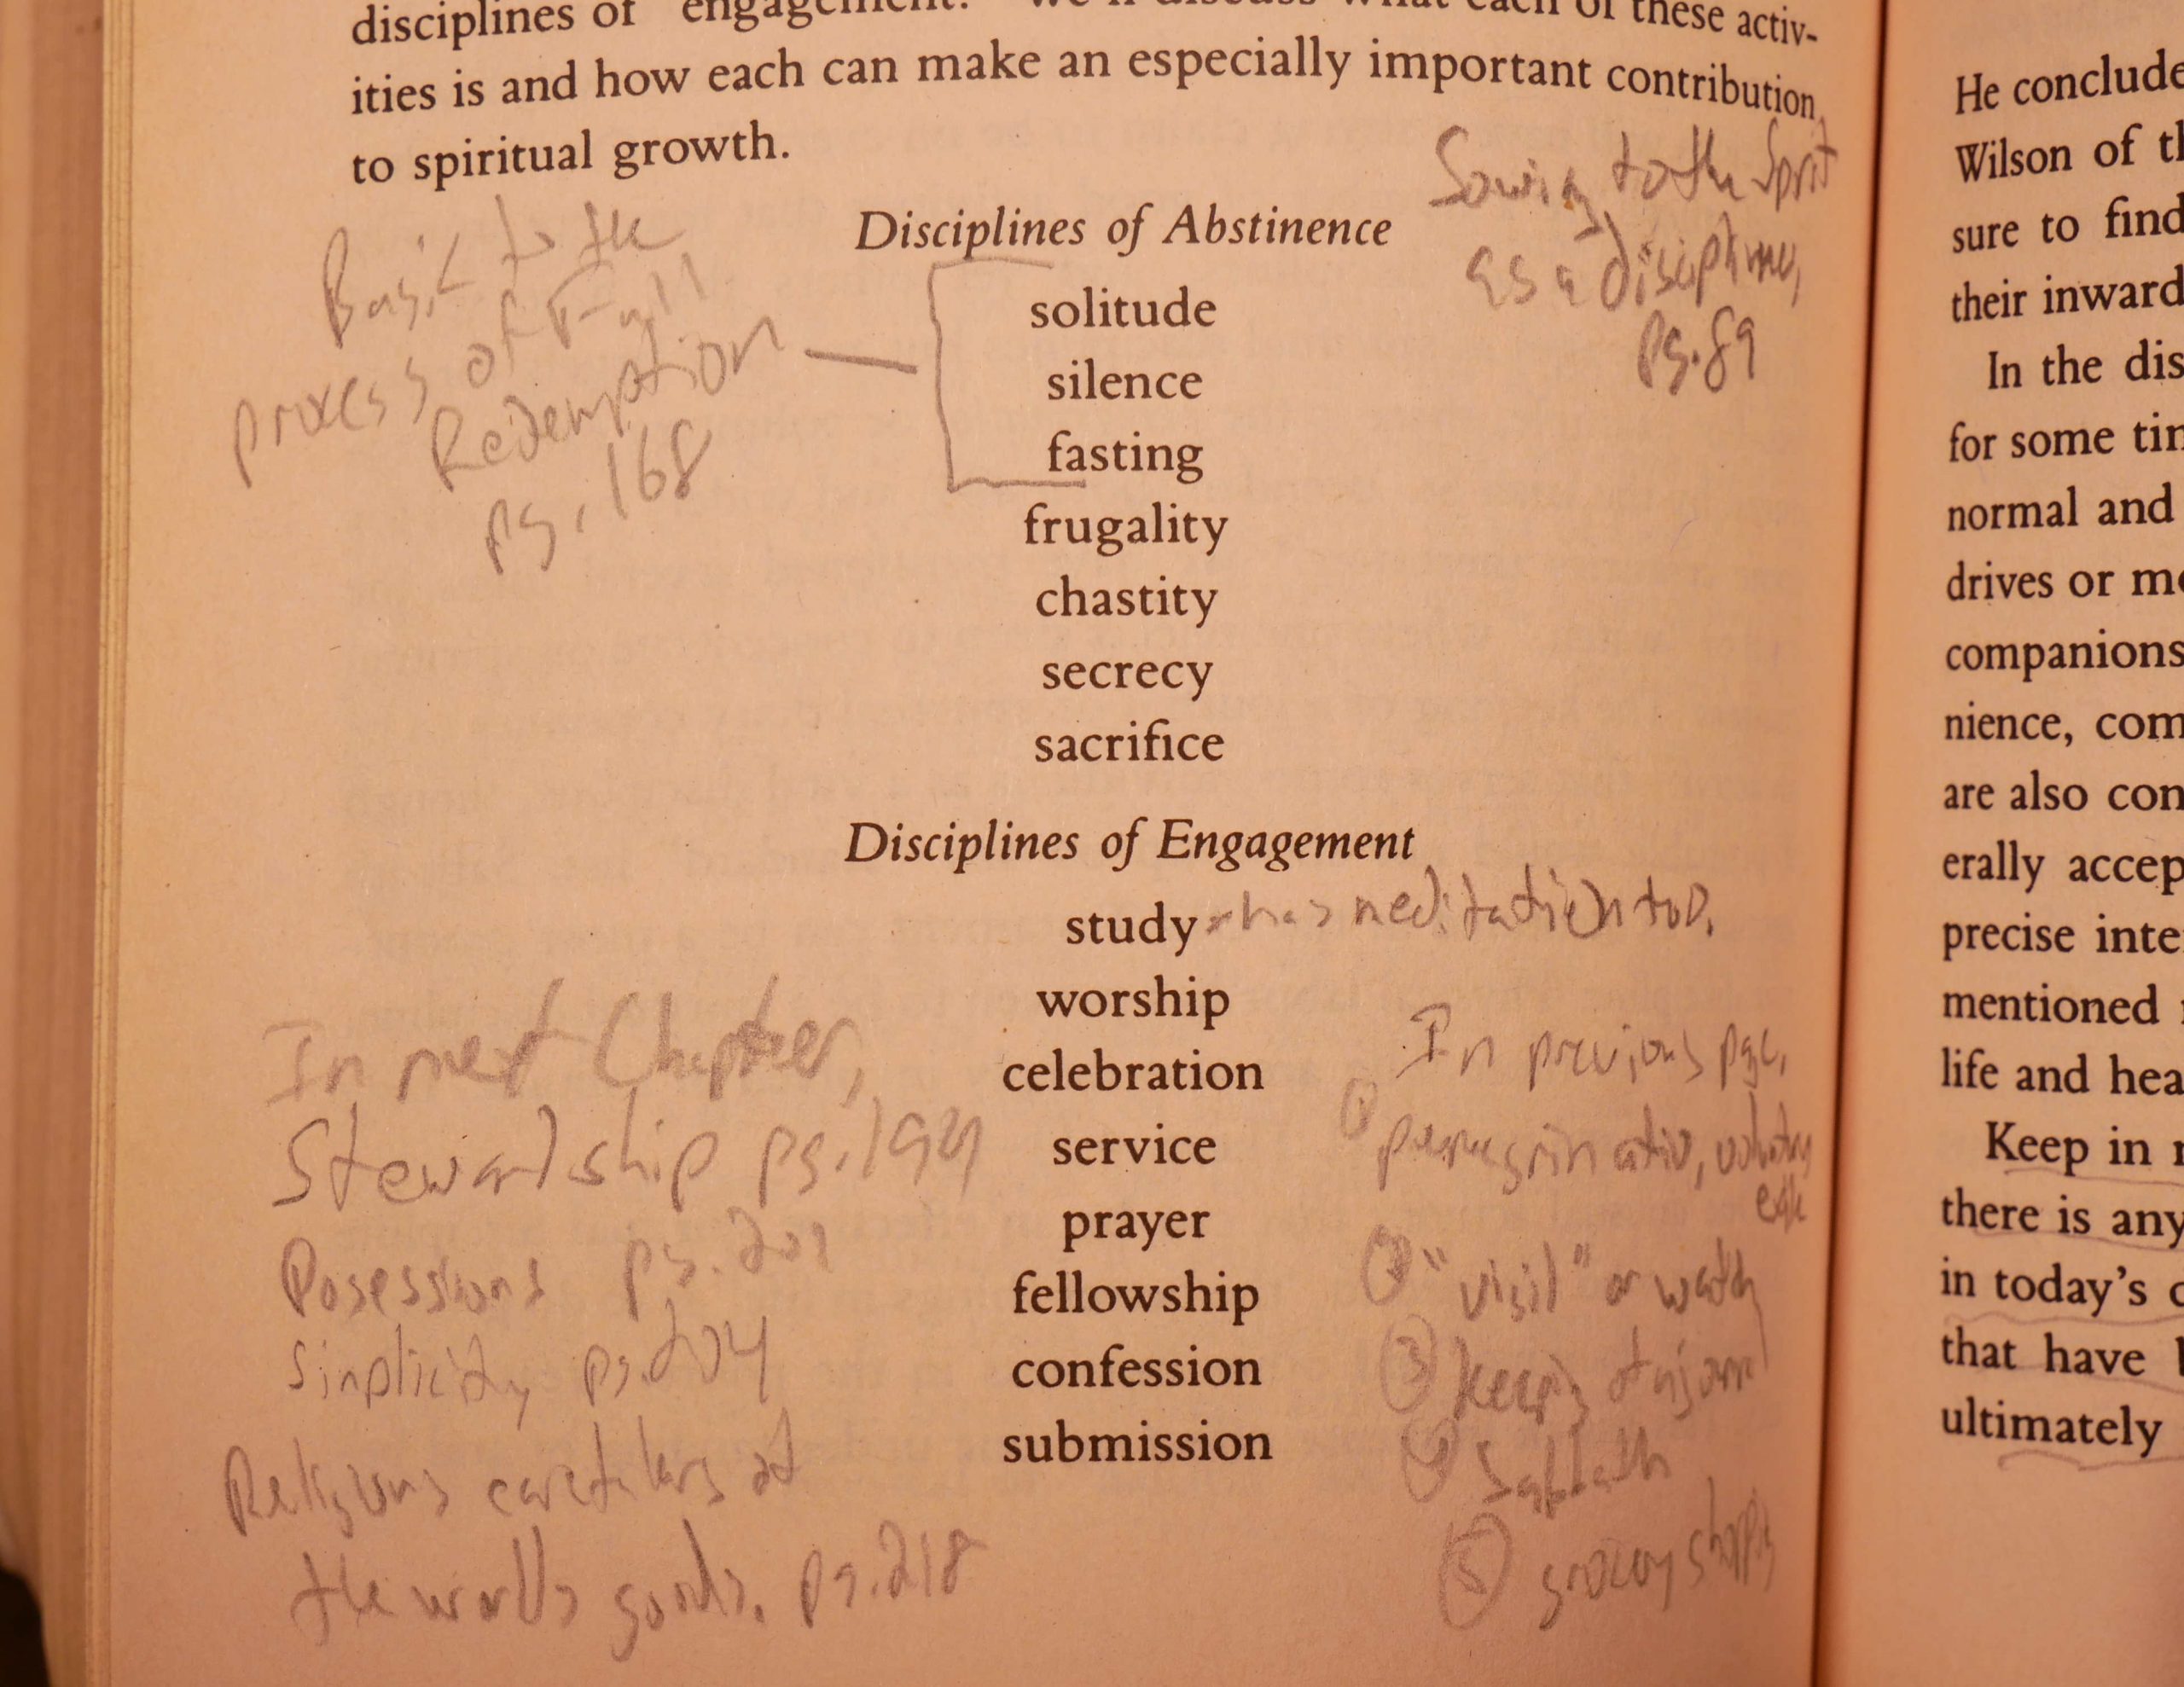 disciplines of "engagement." We'll discuss what each of these activ-
ities is and how each can make an especially important contribution
to spiritual growth.
Sowing to the Spirit
as a discipline,
pg. 89
Basic to the
process of Full
Redemption
pg. 168
Disciplines of Abstinence
solitude
silence
fasting
frugality
chastity
secrecy
sacrifice
Disciplines of Engagement
study - has meditation too.
worship
celebration
service
prayer
fellowship
confession
submission
In next Chapter,
Stewardship pg. 194
Posessions pg. 201
Simplicity pg. 204
Religious caretakers of
the worlds goods. pg. 218
In previous page,
① peregrinatio, voluntary
exile
② "vigil" or watch
③ keeping of a journal
④ Sabbath
⑤ grocery shopping
He conclude
Wilson of th
sure to find
their inward
In the dis
for some tim
normal and
drives or mo
companions
nience, com
are also con
erally accep
precise inte
mentioned
life and hea
Keep in
there is any
in today's c
that have
ultimately